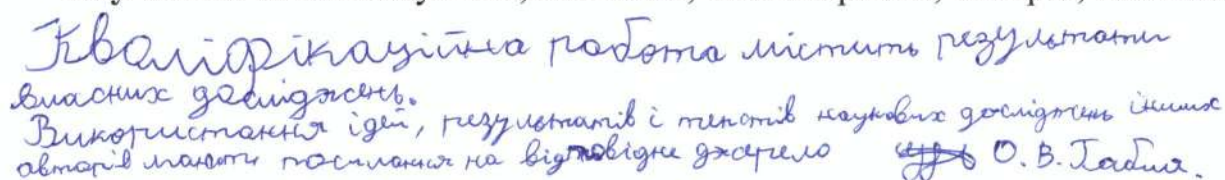 Кваліфікаційна робота містить результати
власних досліджень.
Використання ідей, результатів і текстів наукових досліджень інших
авторів мають посилання на відповідне джерело О. В.